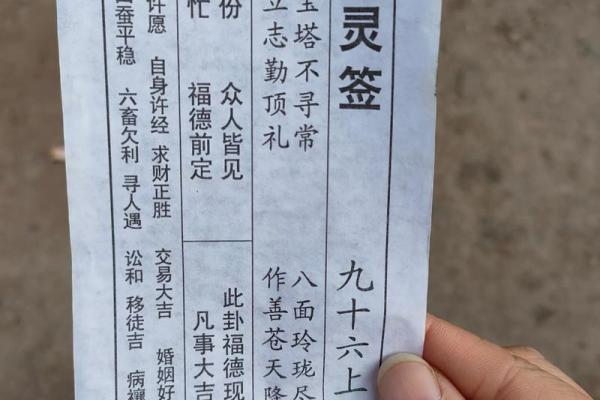 灵签 九十六上
宝塔不寻常 八面玲珑尽
立志勤顶礼 作善苍天降
份 众人皆见 此卦福德现
忙 福德前定 凡事大吉
许愿 自身许经 求财正胜 交易大吉 婚姻好
蚕平稳 六畜欠利 寻人遇 讼和 移徒吉 病禳